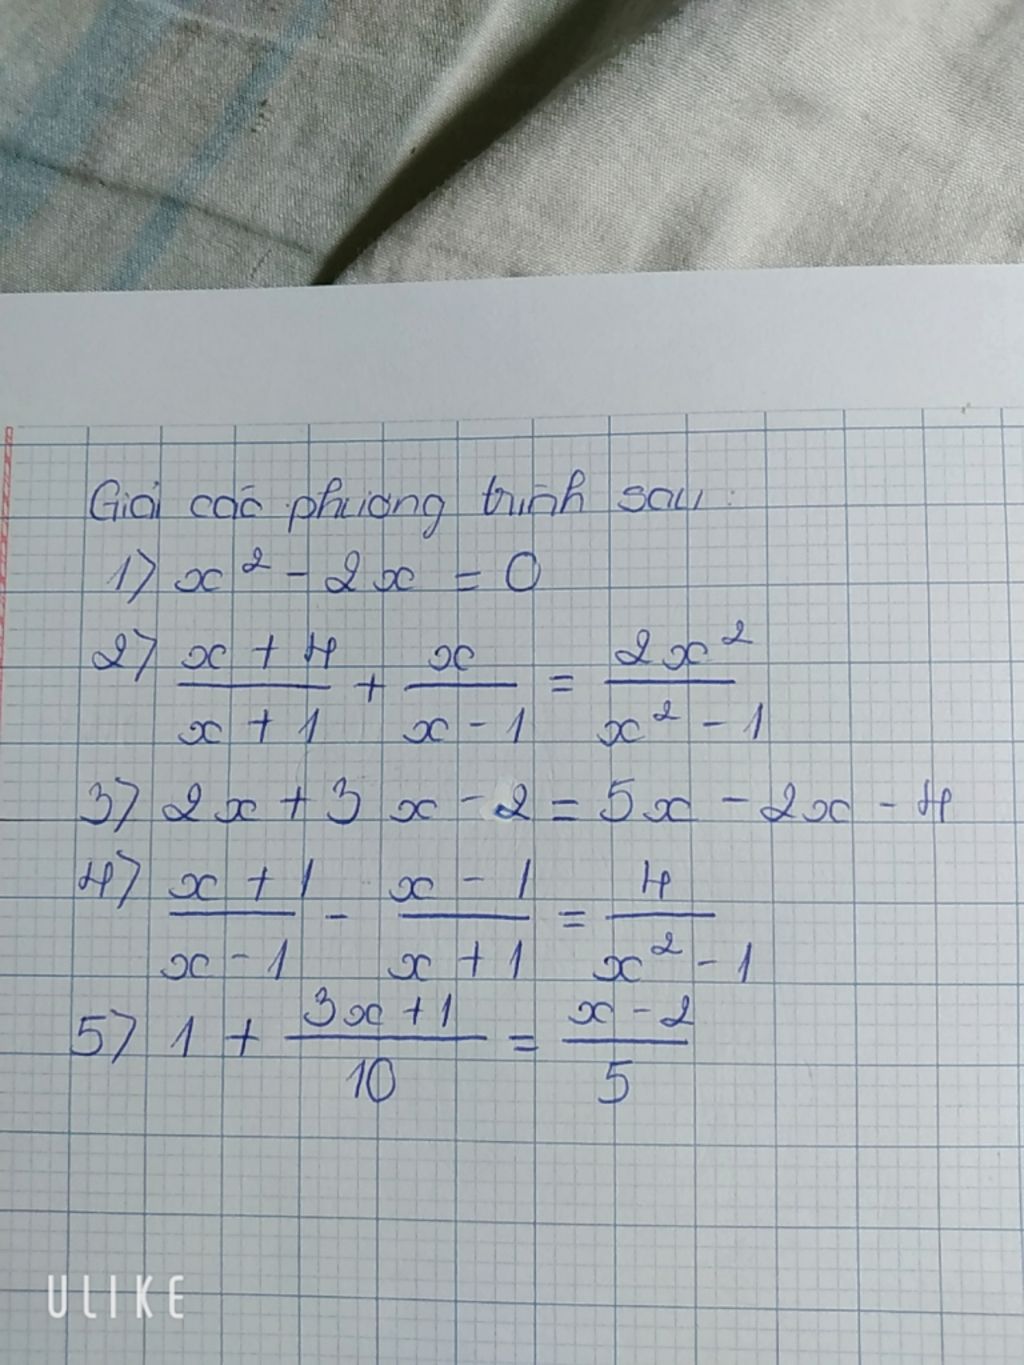 Giải các phương trình sau:
1) x² - 2x = 0
2) (x + 4)/(x + 1) + x/(x - 1) = 2x²/(x² - 1)
3) 2x + 3x - 2 = 5x - 2x - 4
4) (x + 1)/(x - 1) - (x - 1)/(x + 1) = 4/(x² - 1)
5) 1 + (3x + 1)/10 = (x - 2)/5
ULIKE